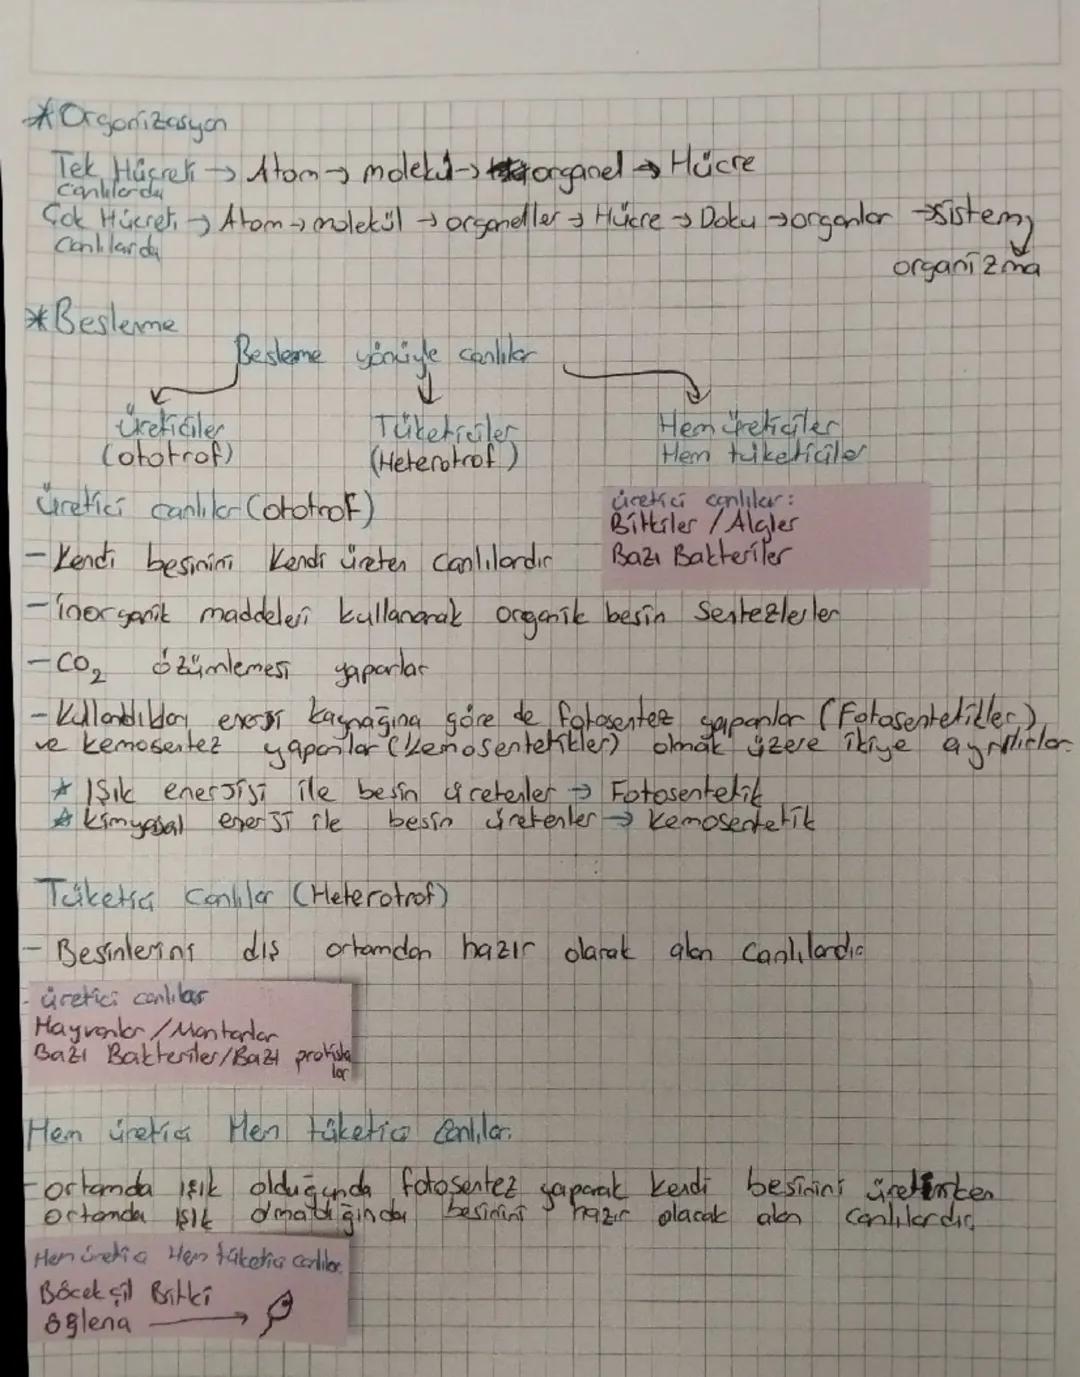 *Organizasyon
Tek Hücreli → Atom → molekül → organel → Hücre
canlılarda
Çok Hücreli → Atom → molekül → organeller → Hücre → Doku → organlar → sistem
canlılarda
organizma
*Beslenme
Beslenme yönüyle canlılar
Üreticiler
(ototrof)
Tüketiciler
(Heterotrof)
Hem üreticiler
Hem tüketiciler
üretici canlılar (ototrof)
üretici canlılar:
Bitkiler / Algler
Bazı Bakteriler
- Kendi besinini kendi üreten canlılardır
- inorganik maddeleri kullanarak organik besin sentezlerler
- CO₂ özümlemesi yaparlar
- Kullandıkları enerji kaynağına göre de fotosentez yapanlar (Fotosentetikler)
ve kemosentez yapanlar (kemosentetikler) olmak üzere ikiye ayrılırlar.
* Işık enerjisi ile besin üretenler → Fotosentetik
* kimyasal enerji ile besin üretenler → kemosentetik
Tüketici Canlılar (Heterotrof)
- Besinlerini dış ortamdan hazır olarak alan canlılardır
üretici canlılar
Hayvanlar / Mantarlar
Bazı Bakteriler/Bazı protista
lar
Hem üretici Hem tüketici canlılar.
- ortamda ışık olduğunda fotosentez yaparak kendi besinini üretirken
ortamda ışık olmadığında besinini hazır olarak alan canlılardır.
Hem üretici Hem tüketici canlılar
Böcekçil Bitki
öglena →